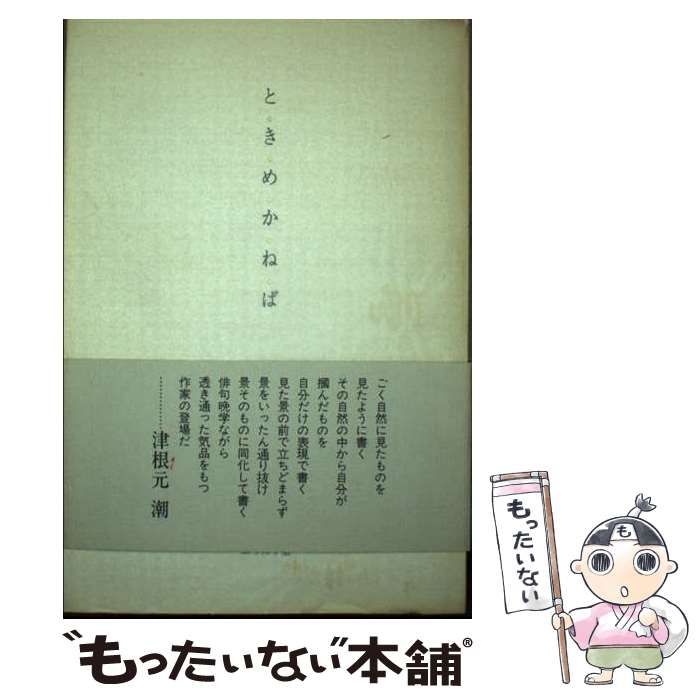 ときめかねば
ごく自然に見たものを
見たように書く
その自然の中から自分が
摑んだものを
自分だけの表現で書く
見た景の前で立ちどまらず
景をいったん通り抜け
景そのものに同化して書く
俳句晩学ながら
透き通った気品をもつ
作家の登場だ
……………津根元 潮
も
もったいない
"もったいない本舗®